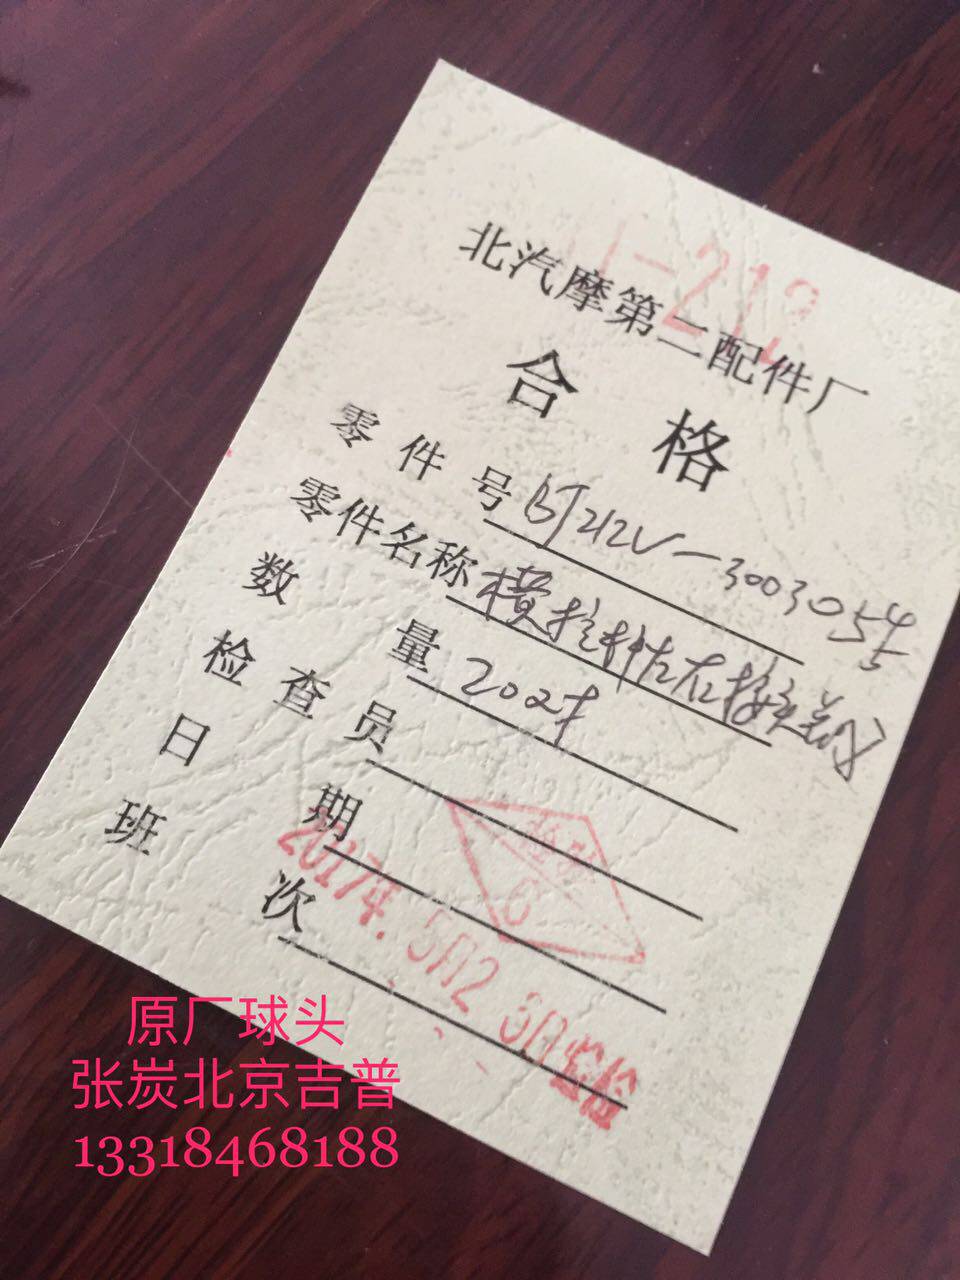 -212
北汽摩第二配件厂
合格
零件号 BJ212V-3003054
5
零件名称 横拉杆左右接头总成
数量 20只
检查员
日期 2017年.5月2 3日
班次
原厂球头
张炭北京吉普
13318468188